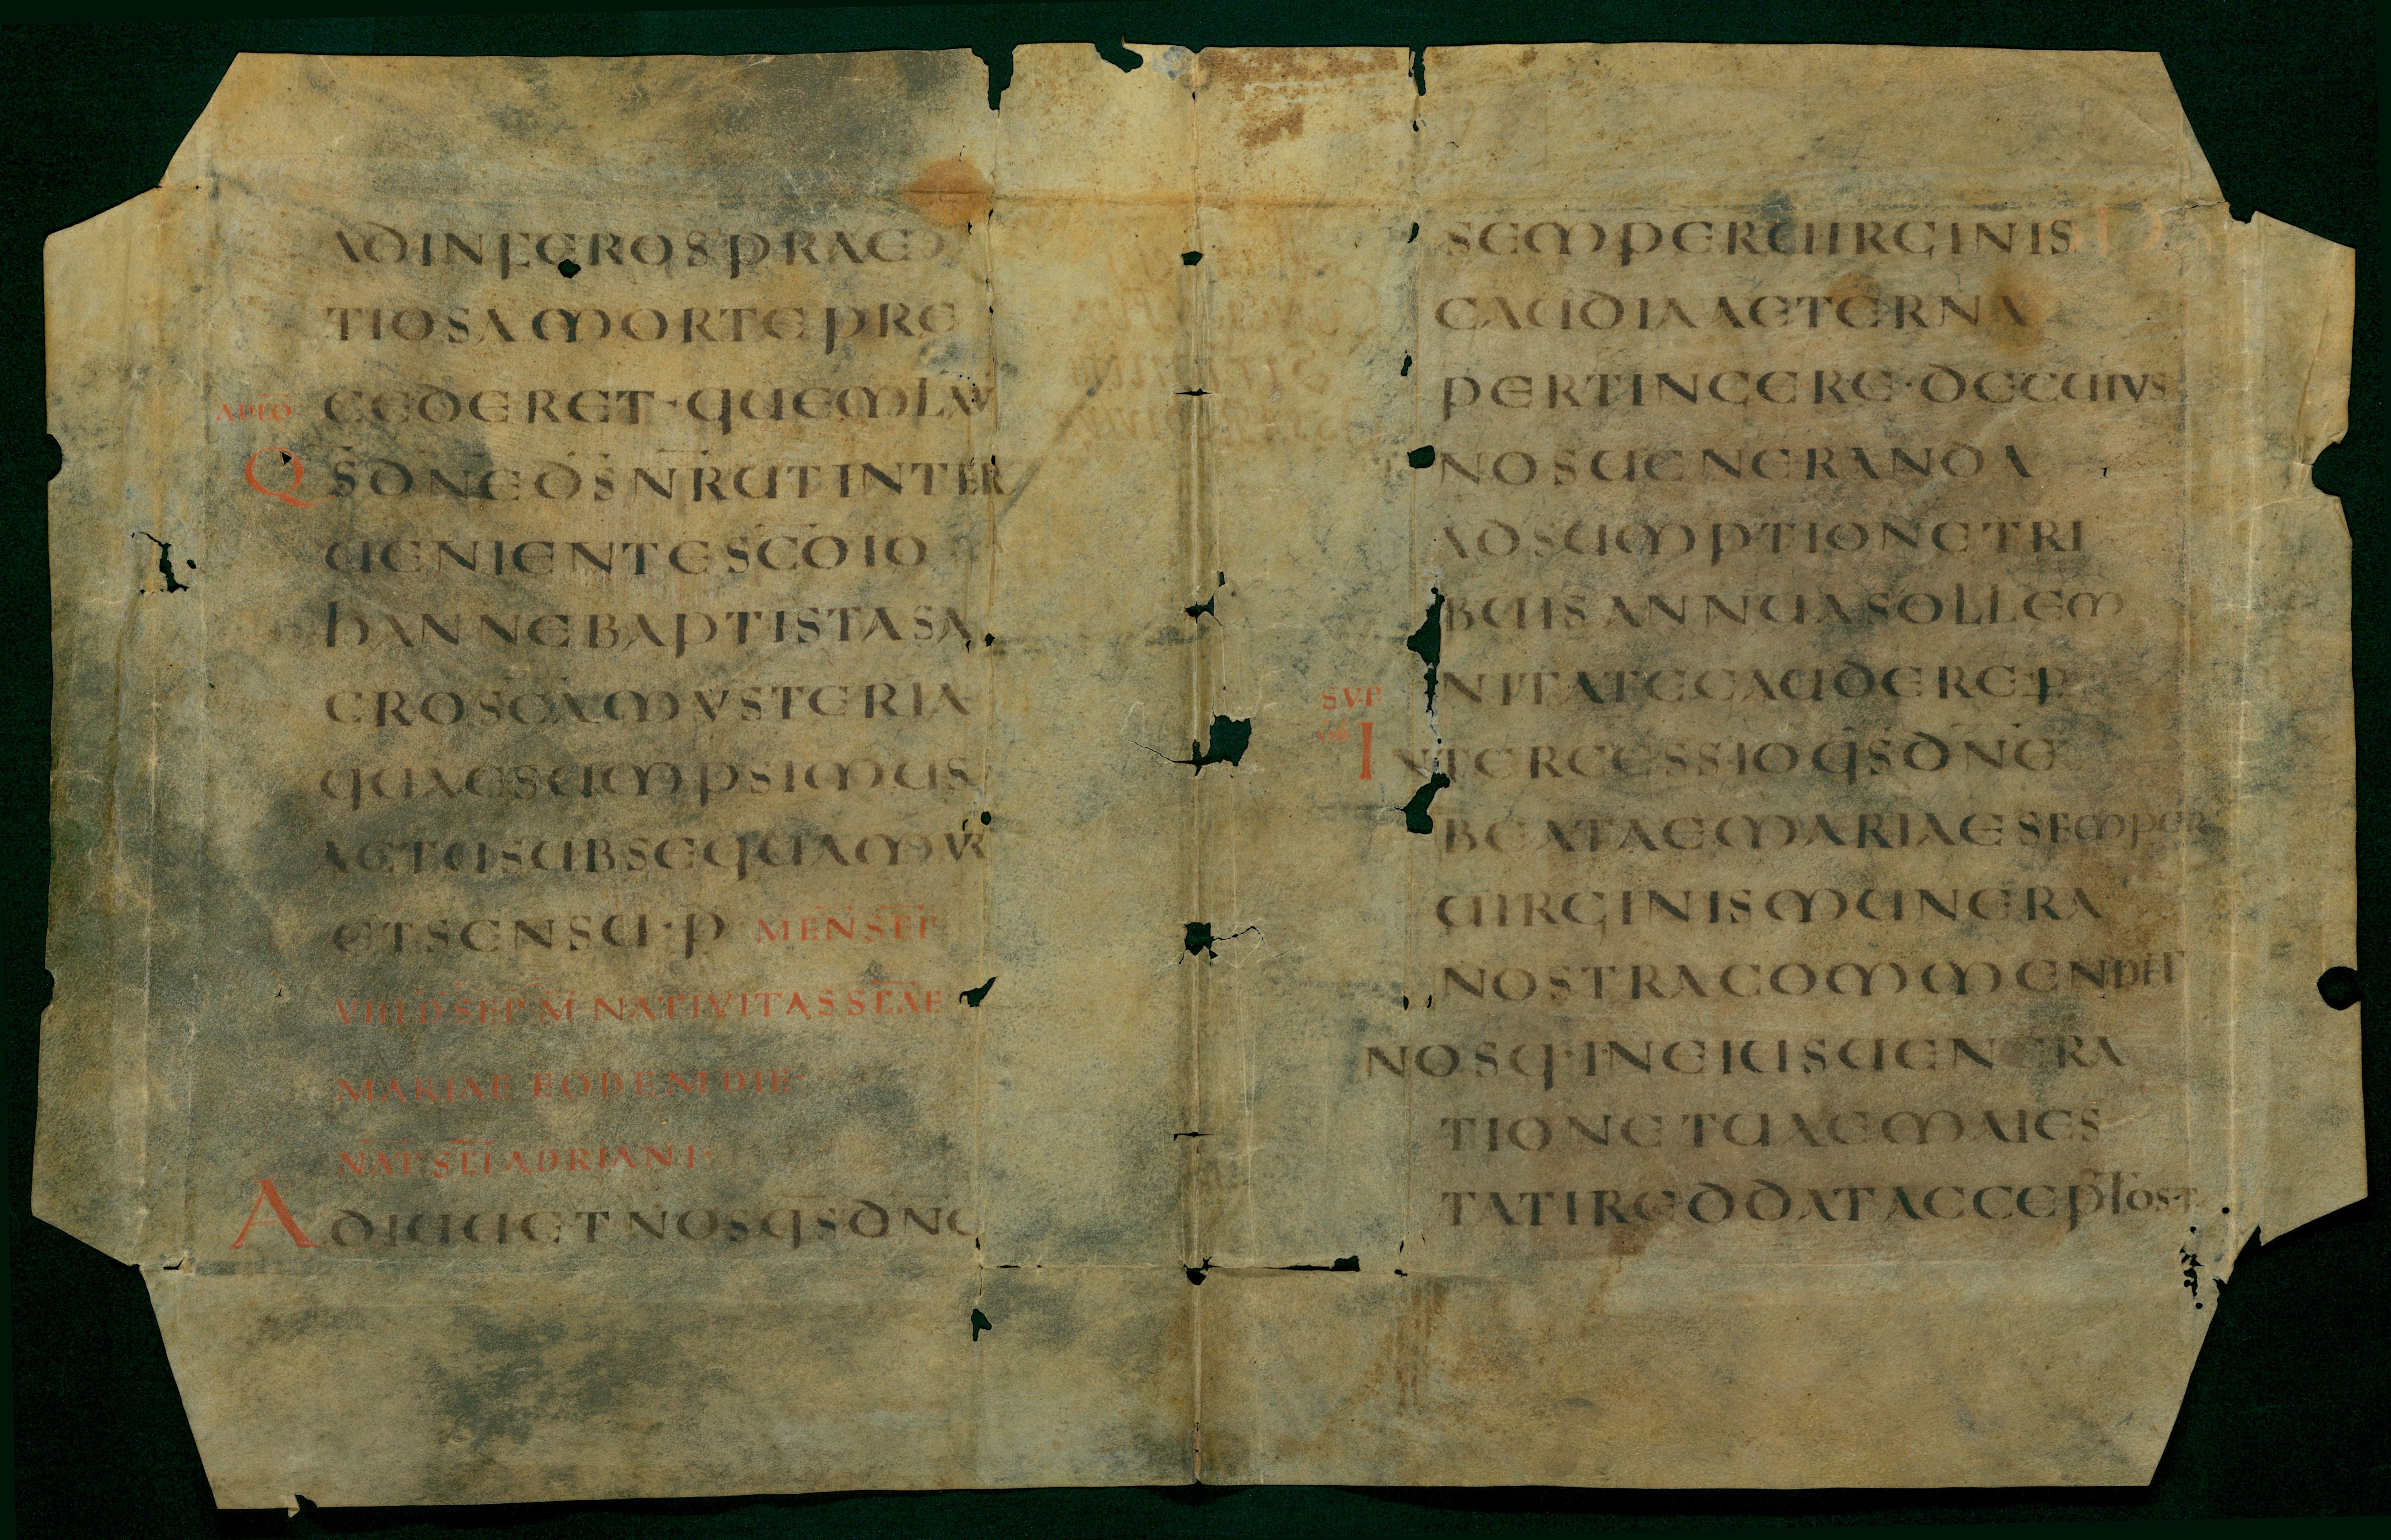 ADINFEROSPRAE
TIOSAMORTEPRE
CEDERET·QUEMLAV
AD PŌ
QS̄DN̄ED̄S̄N̄RUTINTER
UENIENTESC̄OIO
HANNEBAPTISTASA
CROSCAMYSTERIA
QUAESUMPSIMUS
AETUSUBSEQUAMUR
ETSENSU·P MEN̄ SEP̄
VIIII D̄ SEP̄ M̄ NATIVITAS SC̄AE
MARIAE EODEM DIE·
NAT̄ SC̄I ADRIANI·
ADIUUETNOSQ̄SDN̄E
SEMPERUIRGINIS
GAUDIAAETERNA
PERTINGERE·DECUIUS
NOSUENERANDA
ADSUMPTIONETRI
BUISANNUASOLLEM
NITATEGAUDERE·P
SUP
OB̄
INTERCESSIOQ̄SDN̄E
BEATAEMARIAESEMPER
UIRGINISMUNERA
NOSTRACOMMENDET
NOSQ·INEIUSUENERA
TIONETUAEMAIES
TATIREDDATACCEPTOS·P